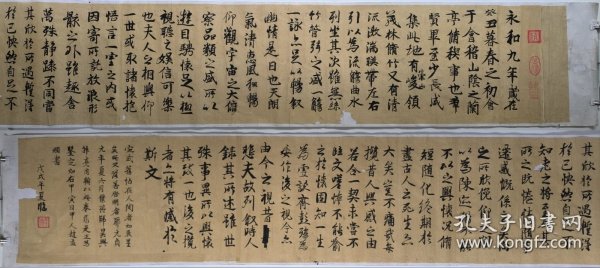 永和九年歲在
癸丑暮春之初會
于會稽山陰之蘭
亭脩稧事也羣
賢畢至少長咸
集此地有崇山峻領
茂林脩竹又有清
流激湍暎帶左右
引以為流觴曲水
列坐其次雖無絲
竹管弦之盛一觴
一詠亦足以暢叙
幽情是日也天朗
氣清惠風和暢
仰觀宇宙之大俯
察品類之盛所以
遊目騁懷足以極
視聽之娛信可樂
也夫人之相與俯仰
一世或取諸懷抱
悟言一室之內或
因寄所託放浪形
骸之外雖趣舍
萬殊靜躁不同當
其欣於所遇蹔得
於己快然自足不
其欣於所遇蹔得
於己快然自足不
知老之將至及其
所之既惓情隨事
遷感慨係之矣向
之所欣俛仰之間
以為陳迹猶不能
不以之興懷況脩
短隨化終期於
盡古人云死生亦
大矣豈不痛哉每
攬昔人興感之由
若合一契未嘗不
臨文嗟悼不能喻
之於懷固知一死生
為虛誕齊彭殤為
妄作後之視今亦
由今之視昔
悲夫故列叙時人
錄其所述雖世
殊事異所以興懷
其致一也後之攬
者亦將有感於
斯文
定武舊帖在人間者如晨星
元年夏六月僕將歸吳興
頫書
戊戌年夏臨
孔夫子旧书网
www.kongfz.com